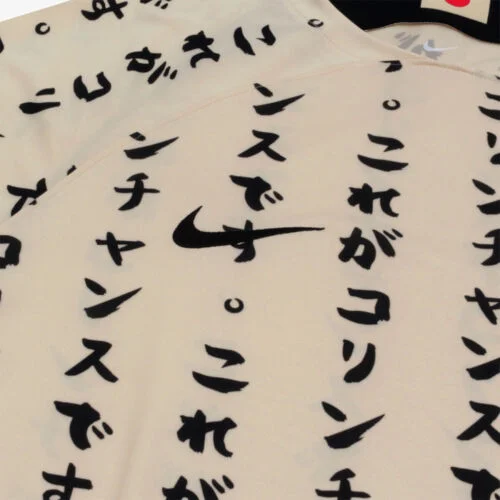 コリンチャンスです
。これがコリンチ
ンスです。これが
ンチャンスです
これがコリ
す。